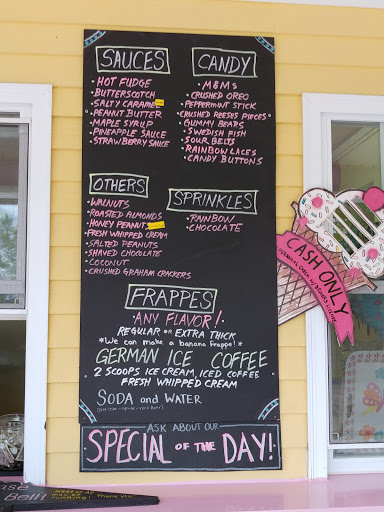 SAUCES
• HOT FUDGE
• BUTTERSCOTCH
• SALTY CARAMEL
• PEANUT BUTTER
• MAPLE SYRUP
• PINEAPPLE SAUCE
• STRAWBERRY SAUCE
CANDY
• M&M's
• CRUSHED OREO
• PEPPERMINT STICK
• CRUSHED REESES PIECES
• GUMMY BEARS
• SWEDISH FISH
• SOUR BELTS
• RAINBOW LACES
• CANDY BUTTONS
OTHERS
• WALNUTS
• ROASTED ALMONDS
• HONEY PEANUTS
• FRESH WHIPPED CREAM
• SALTED PEANUTS
• SHAVED CHOCOLATE
• COCONUT
• CRUSHED GRAHAM CRACKERS
SPRINKLES
• RAINBOW
• CHOCOLATE
FRAPPES
• ANY FLAVOR! •
REGULAR OR EXTRA THICK
*We can make a banana frappe!*
GERMAN ICE COFFEE
2 SCOOPS ICE CREAM, ICED COFFEE
FRESH WHIPPED CREAM
SODA and WATER
ASK ABOUT OUR
SPECIAL OF THE DAY!
CASH ONLY
Bell!
THANK YOU!